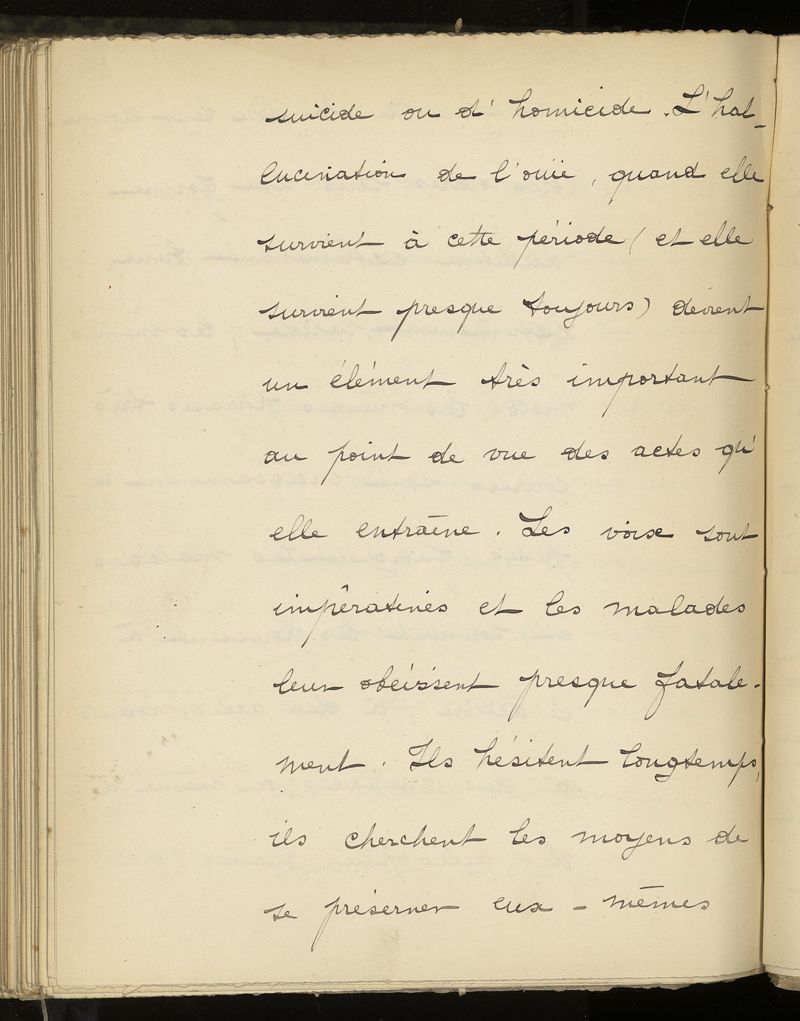 suicide ou d'homicide. L'hal-
lucination de l'ouïe, quand elle
survient à cette période (et elle
survient presque toujours) devient
un élément très important
au point de vue des actes qu'
elle entraîne. Les voix sont
impératives et les malades
leur obéissent presque fatale-
ment. Ils hésitent longtemps,
ils cherchent les moyens de
se préserver eux-mêmes